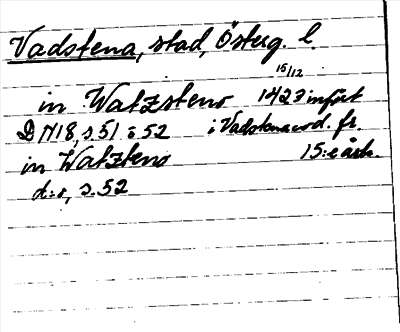 Vadstena, stad, Östug. l.
15/12
in Watzstens 1423 infört
DN 18, s. 51 o 52 i Vadstena cod. fr.
in Watztens 15:e årh.
d:o, s. 52